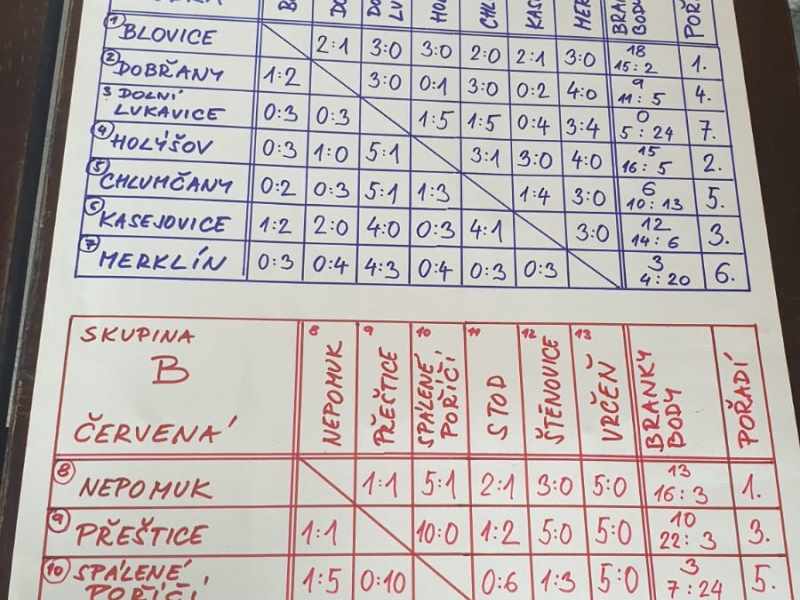 1 BLOVICE 2:1 3:0 3:0 2:0 2:1 3:0 18 15:2 1.
2 DOBŘANY 1:2 3:0 0:1 3:0 0:2 4:0 9 11:5 4.
3 DOLNÍ LUKAVICE 0:3 0:3 1:5 1:5 0:4 3:4 0 5:24 7.
4 HOLÝŠOV 0:3 1:0 5:1 3:1 3:0 4:0 15 16:5 2.
5 CHLUMČANY 0:2 0:3 5:1 1:3 1:4 3:0 6 10:13 5.
6 KASEJOVICE 1:2 2:0 4:0 0:3 4:1 3:0 12 14:6 3.
7 MERKLÍN 0:3 0:4 4:3 0:4 0:3 0:3 3 4:20 6.
SKUPINA
B
ČERVENÁ
8 NEPOMUK
9 PŘEŠTICE
10 SPÁLENÉ POŘÍČÍ
11 STOD
12 ŠTĚNOVICE
13 VRČEŇ
BRANKY BODY
POŘADÍ
8 NEPOMUK 1:1 5:1 2:1 3:0 5:0 13 16:3 1.
9 PŘEŠTICE 1:1 10:0 1:2 5:0 5:0 10 22:3 3.
10 SPÁLENÉ POŘÍČÍ 1:5 0:10 0:6 1:3 5:0 3 7:24 5.